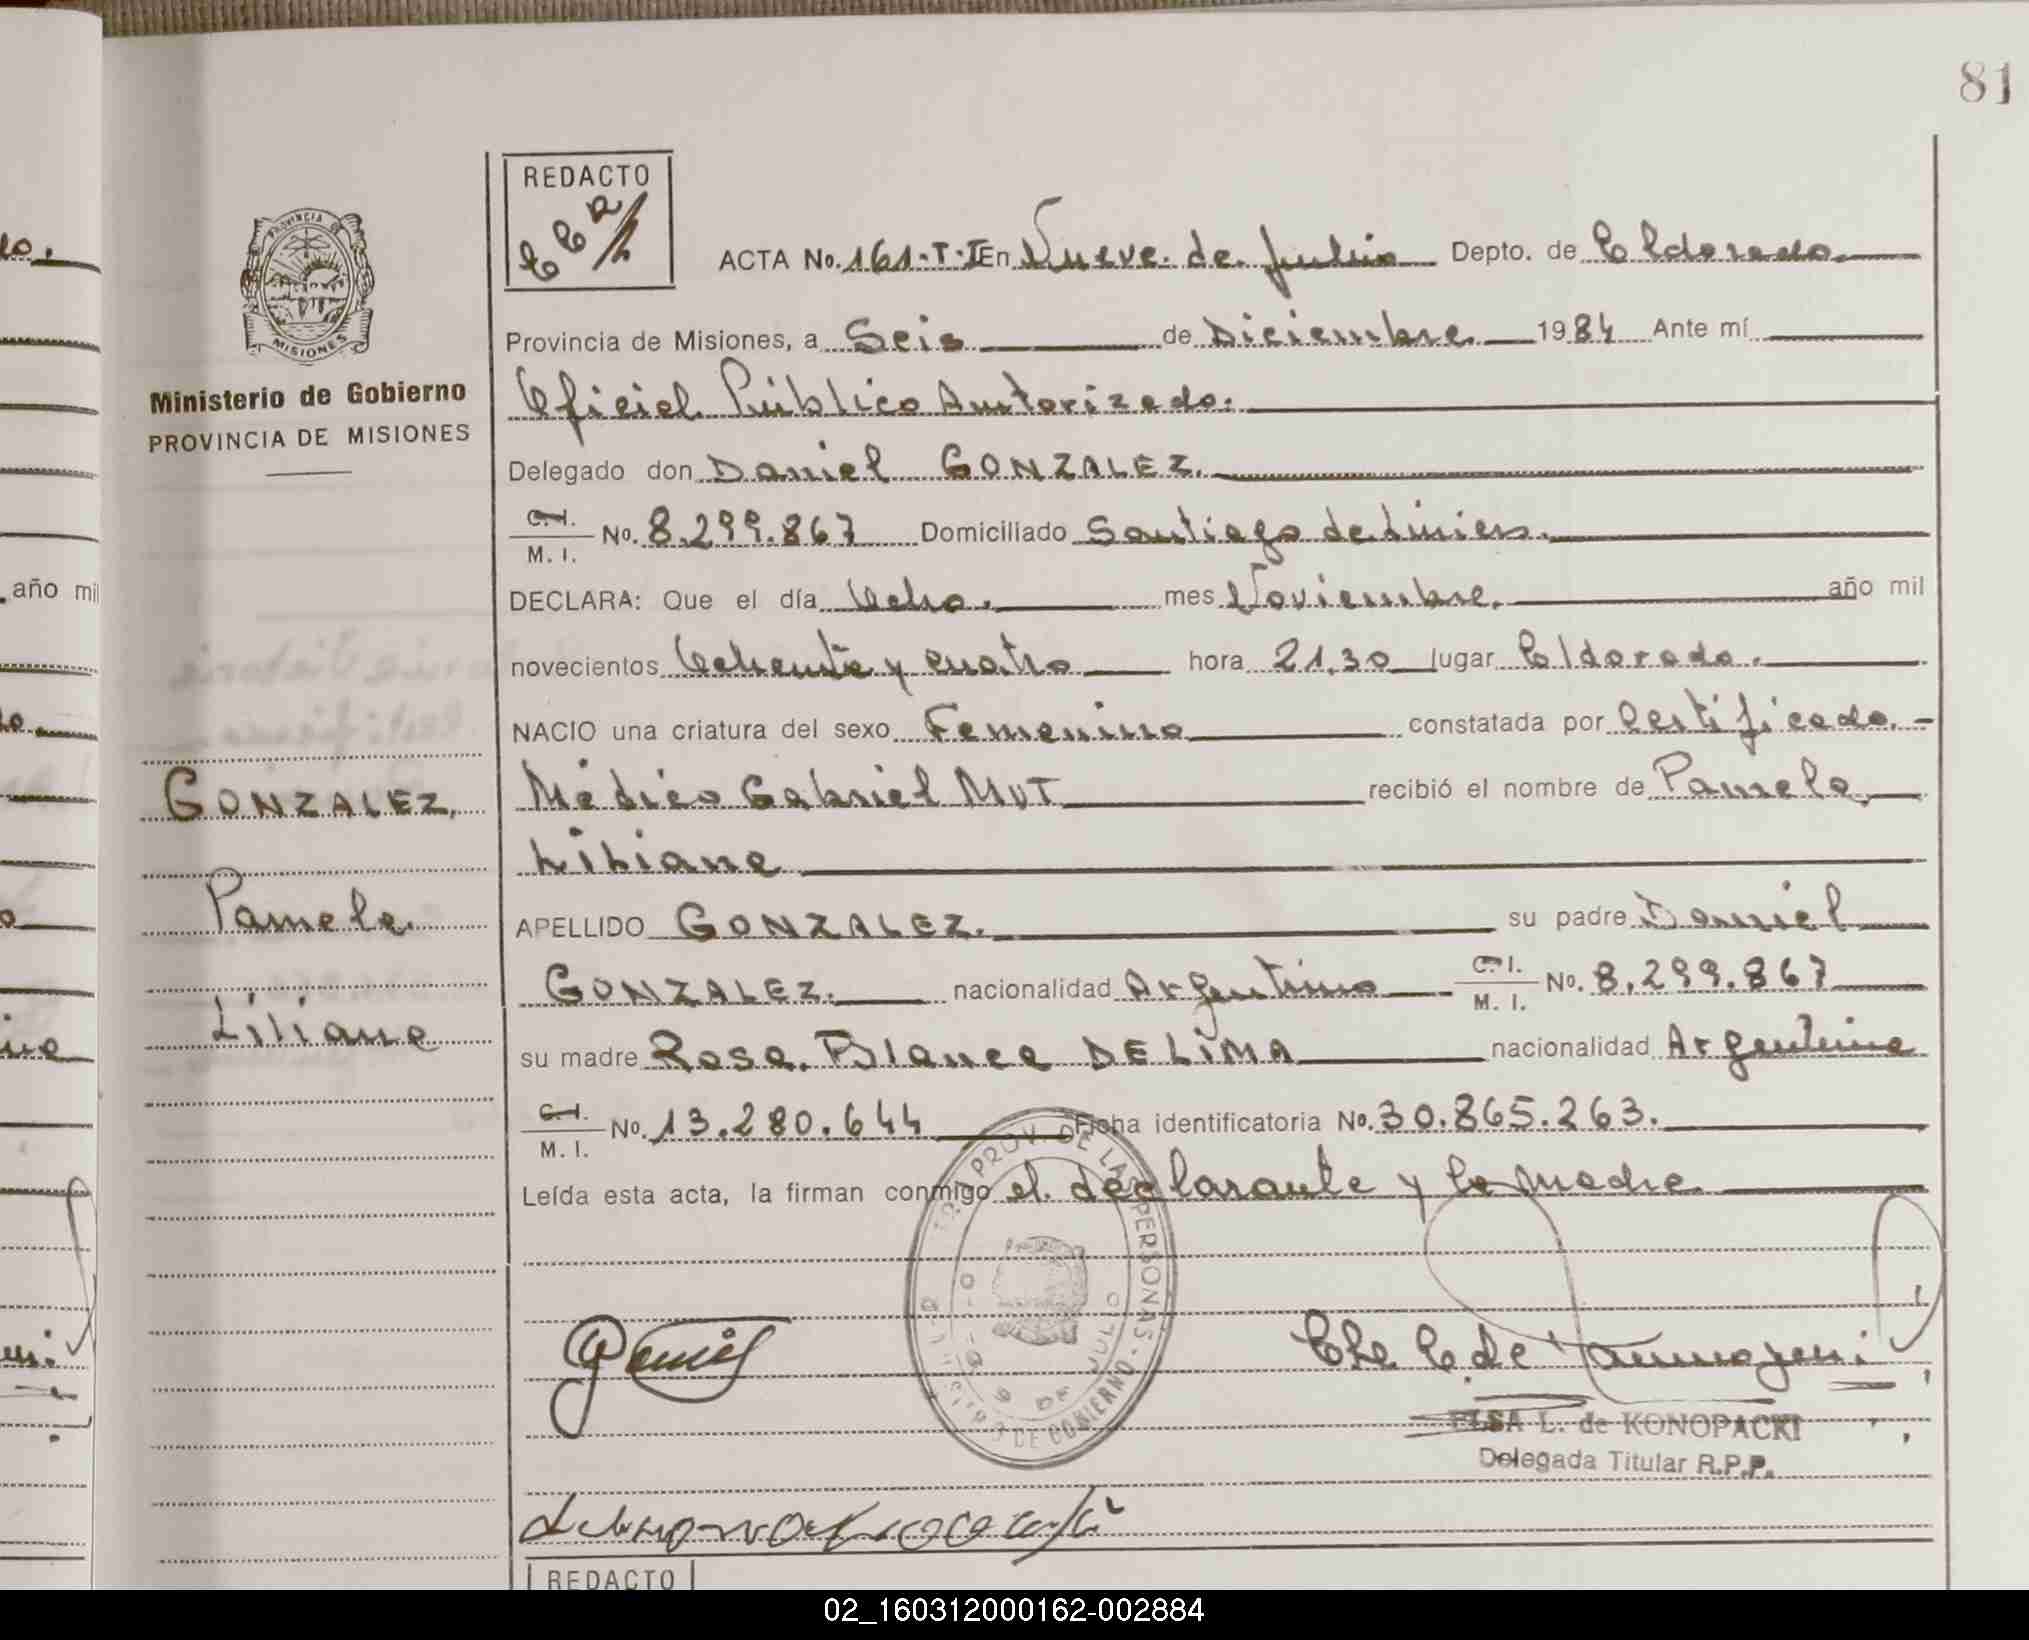 81
REDACTO
PROVINCIA
MISIONES
Ministerio de Gobierno
PROVINCIA DE MISIONES
ACTA No. 161-T-I En Nueve de Julio Depto. de Eldorado.
Provincia de Misiones, a Seis de Diciembre 1984 Ante mí
Oficial Público Autorizado.
Delegado don Daniel GONZALEZ.
C.I. / M. I. No. 8.299.867 Domiciliado Santiago de Liniers.
DECLARA: Que el día Ocho. mes Noviembre. año mil
novecientos Ochenta y cuatro hora 21,30 lugar Eldorado.
NACIO una criatura del sexo Femenino constatada por Certificado.-
Médico Gabriel MUT recibió el nombre de Pamela
Liliana
APELLIDO GONZALEZ. su padre Daniel
GONZALEZ. nacionalidad Argentino C.I. / M. I. No. 8.299.867
su madre Rosa Blanca DE LIMA nacionalidad Argentina
C.I. / M. I. No. 13.280.644 Ficha identificatoria No. 30.865.263.
Leída esta acta, la firman conmigo el declarante y la madre
GONZALEZ.
Pamela.
Liliana
PROV. DE LAS PERSONAS - DE GOBIERNO
9 DE JULIO
ELSA L. de KONOPACKI
Delegada Titular R.P.P.
REDACTO
año mil
02_160312000162-002884